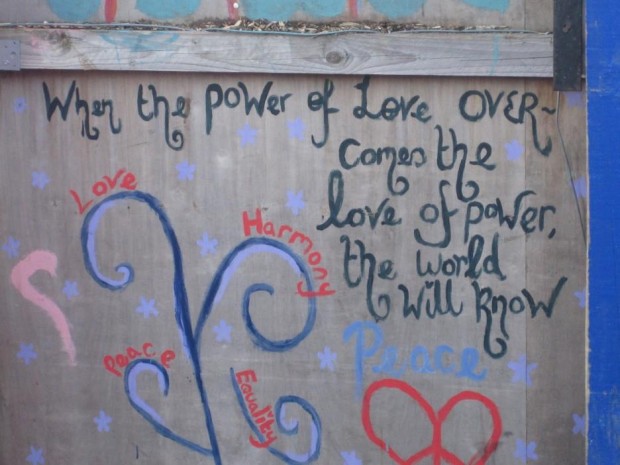 When the power of Love OVER-
comes the
love of power,
the world
will know
Peace
Love
Harmony
Peace
Equality